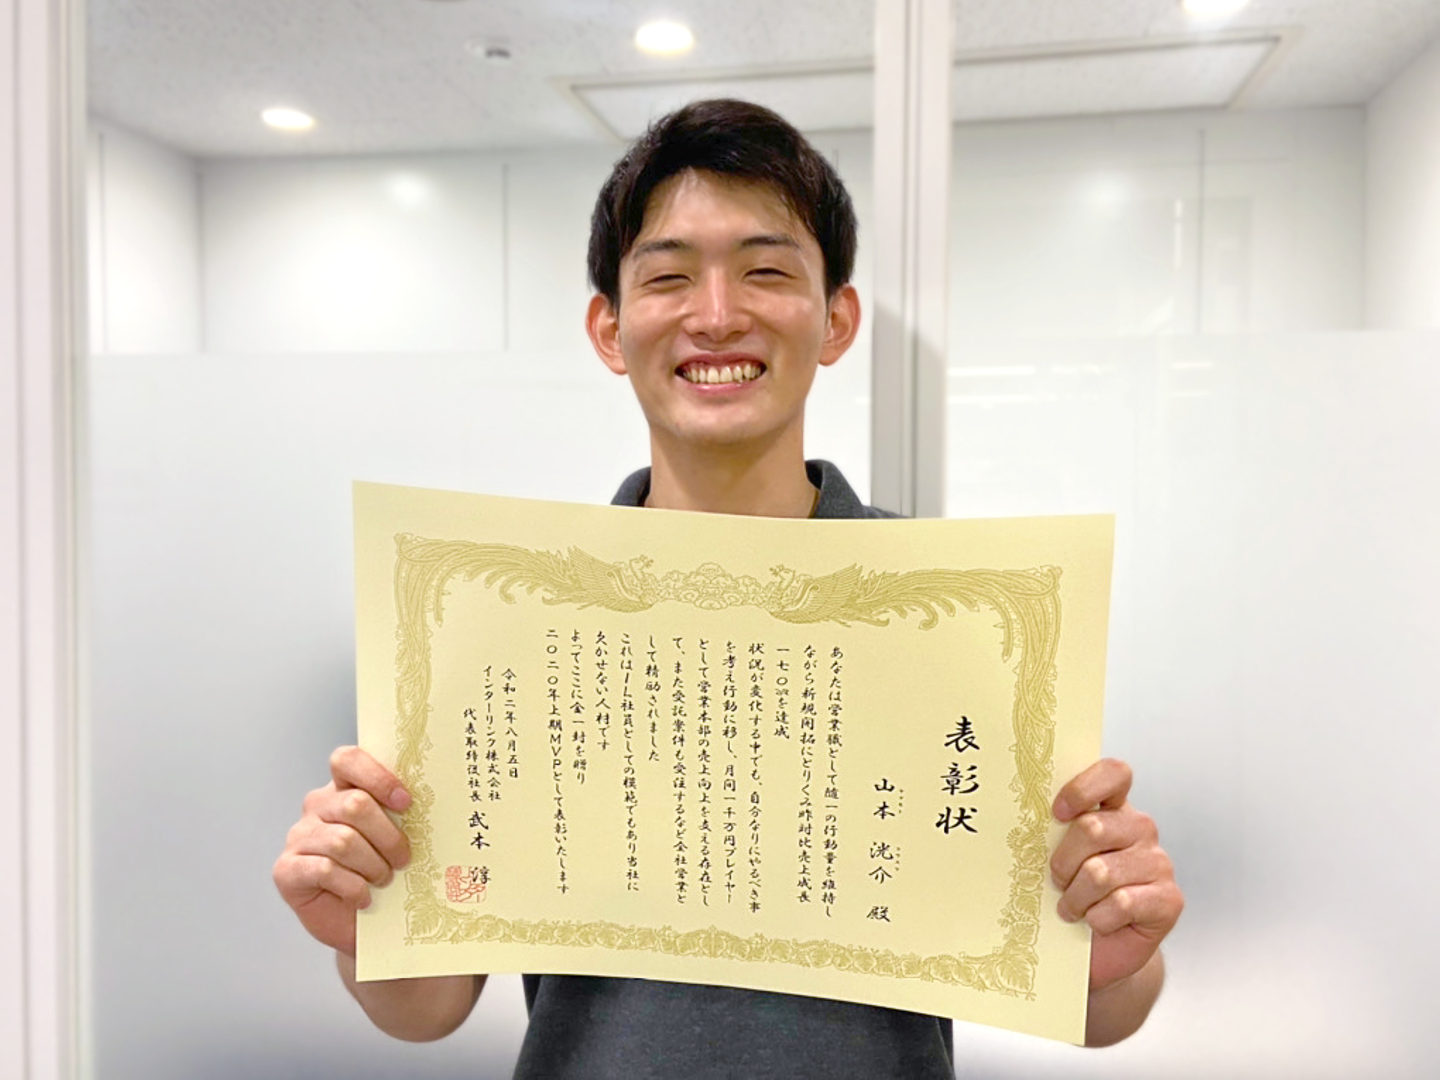 表彰状
山本 洸介 殿
あなたは営業職として随一の行動量を維持し
ながら新規開拓にとりくみ昨対比売上成長
一七〇%を達成
状況が変化する中でも、自分なりにやるべき事
を考え行動に移し、月間一千万円プレイヤー
として営業本部の売上向上を支える存在とし
て、また受託案件も受注するなど全社営業と
して精励されました
これはIL社員としての模範でもあり当社に
欠かせない人材です
よってここに金一封を贈り
二〇二〇年上期MVPとして表彰いたします
令和二年八月五日
インターリンク株式会社
代表取締役社長 武本 淳